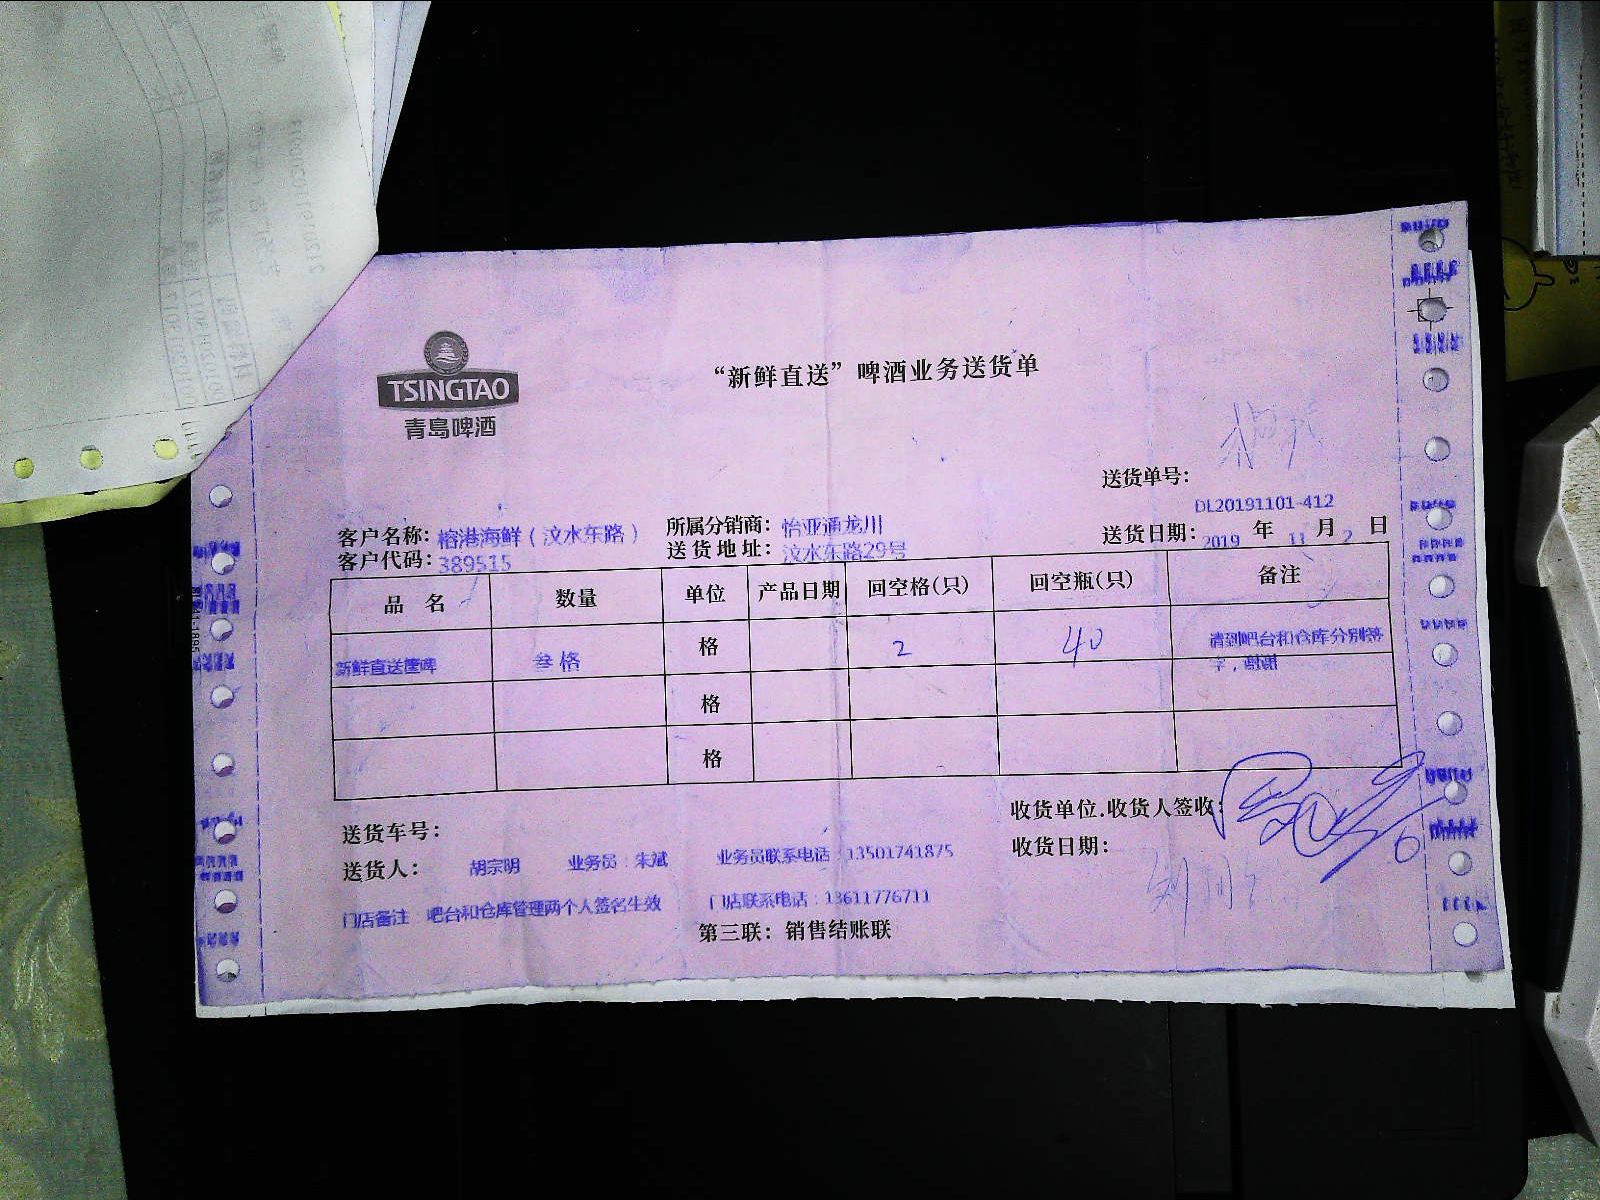 TSINGTAO
青島啤酒
“新鲜直送”啤酒业务送货单
送货单号：
DL20191101-412
客户名称：榕港海鲜（汶水东路） 所属分销商：怡亚通龙川 送货日期：2019 年 11 月 2 日
客户代码：389515 送货地址：汶水东路29号
品 名 数量 单位 产品日期 回空格(只) 回空瓶(只) 备注
新鲜直送筐啤 叁格 格 2 40 请到吧台和仓库分别签
字，谢谢
格
格
送货车号： 收货单位.收货人签收：
送货人： 胡宗明 业务员：朱斌 业务员联系电话：13501741875 收货日期：
门店备注 吧台和仓库管理两个人签名生效 门店联系电话：13611776711
第三联：销售结账联